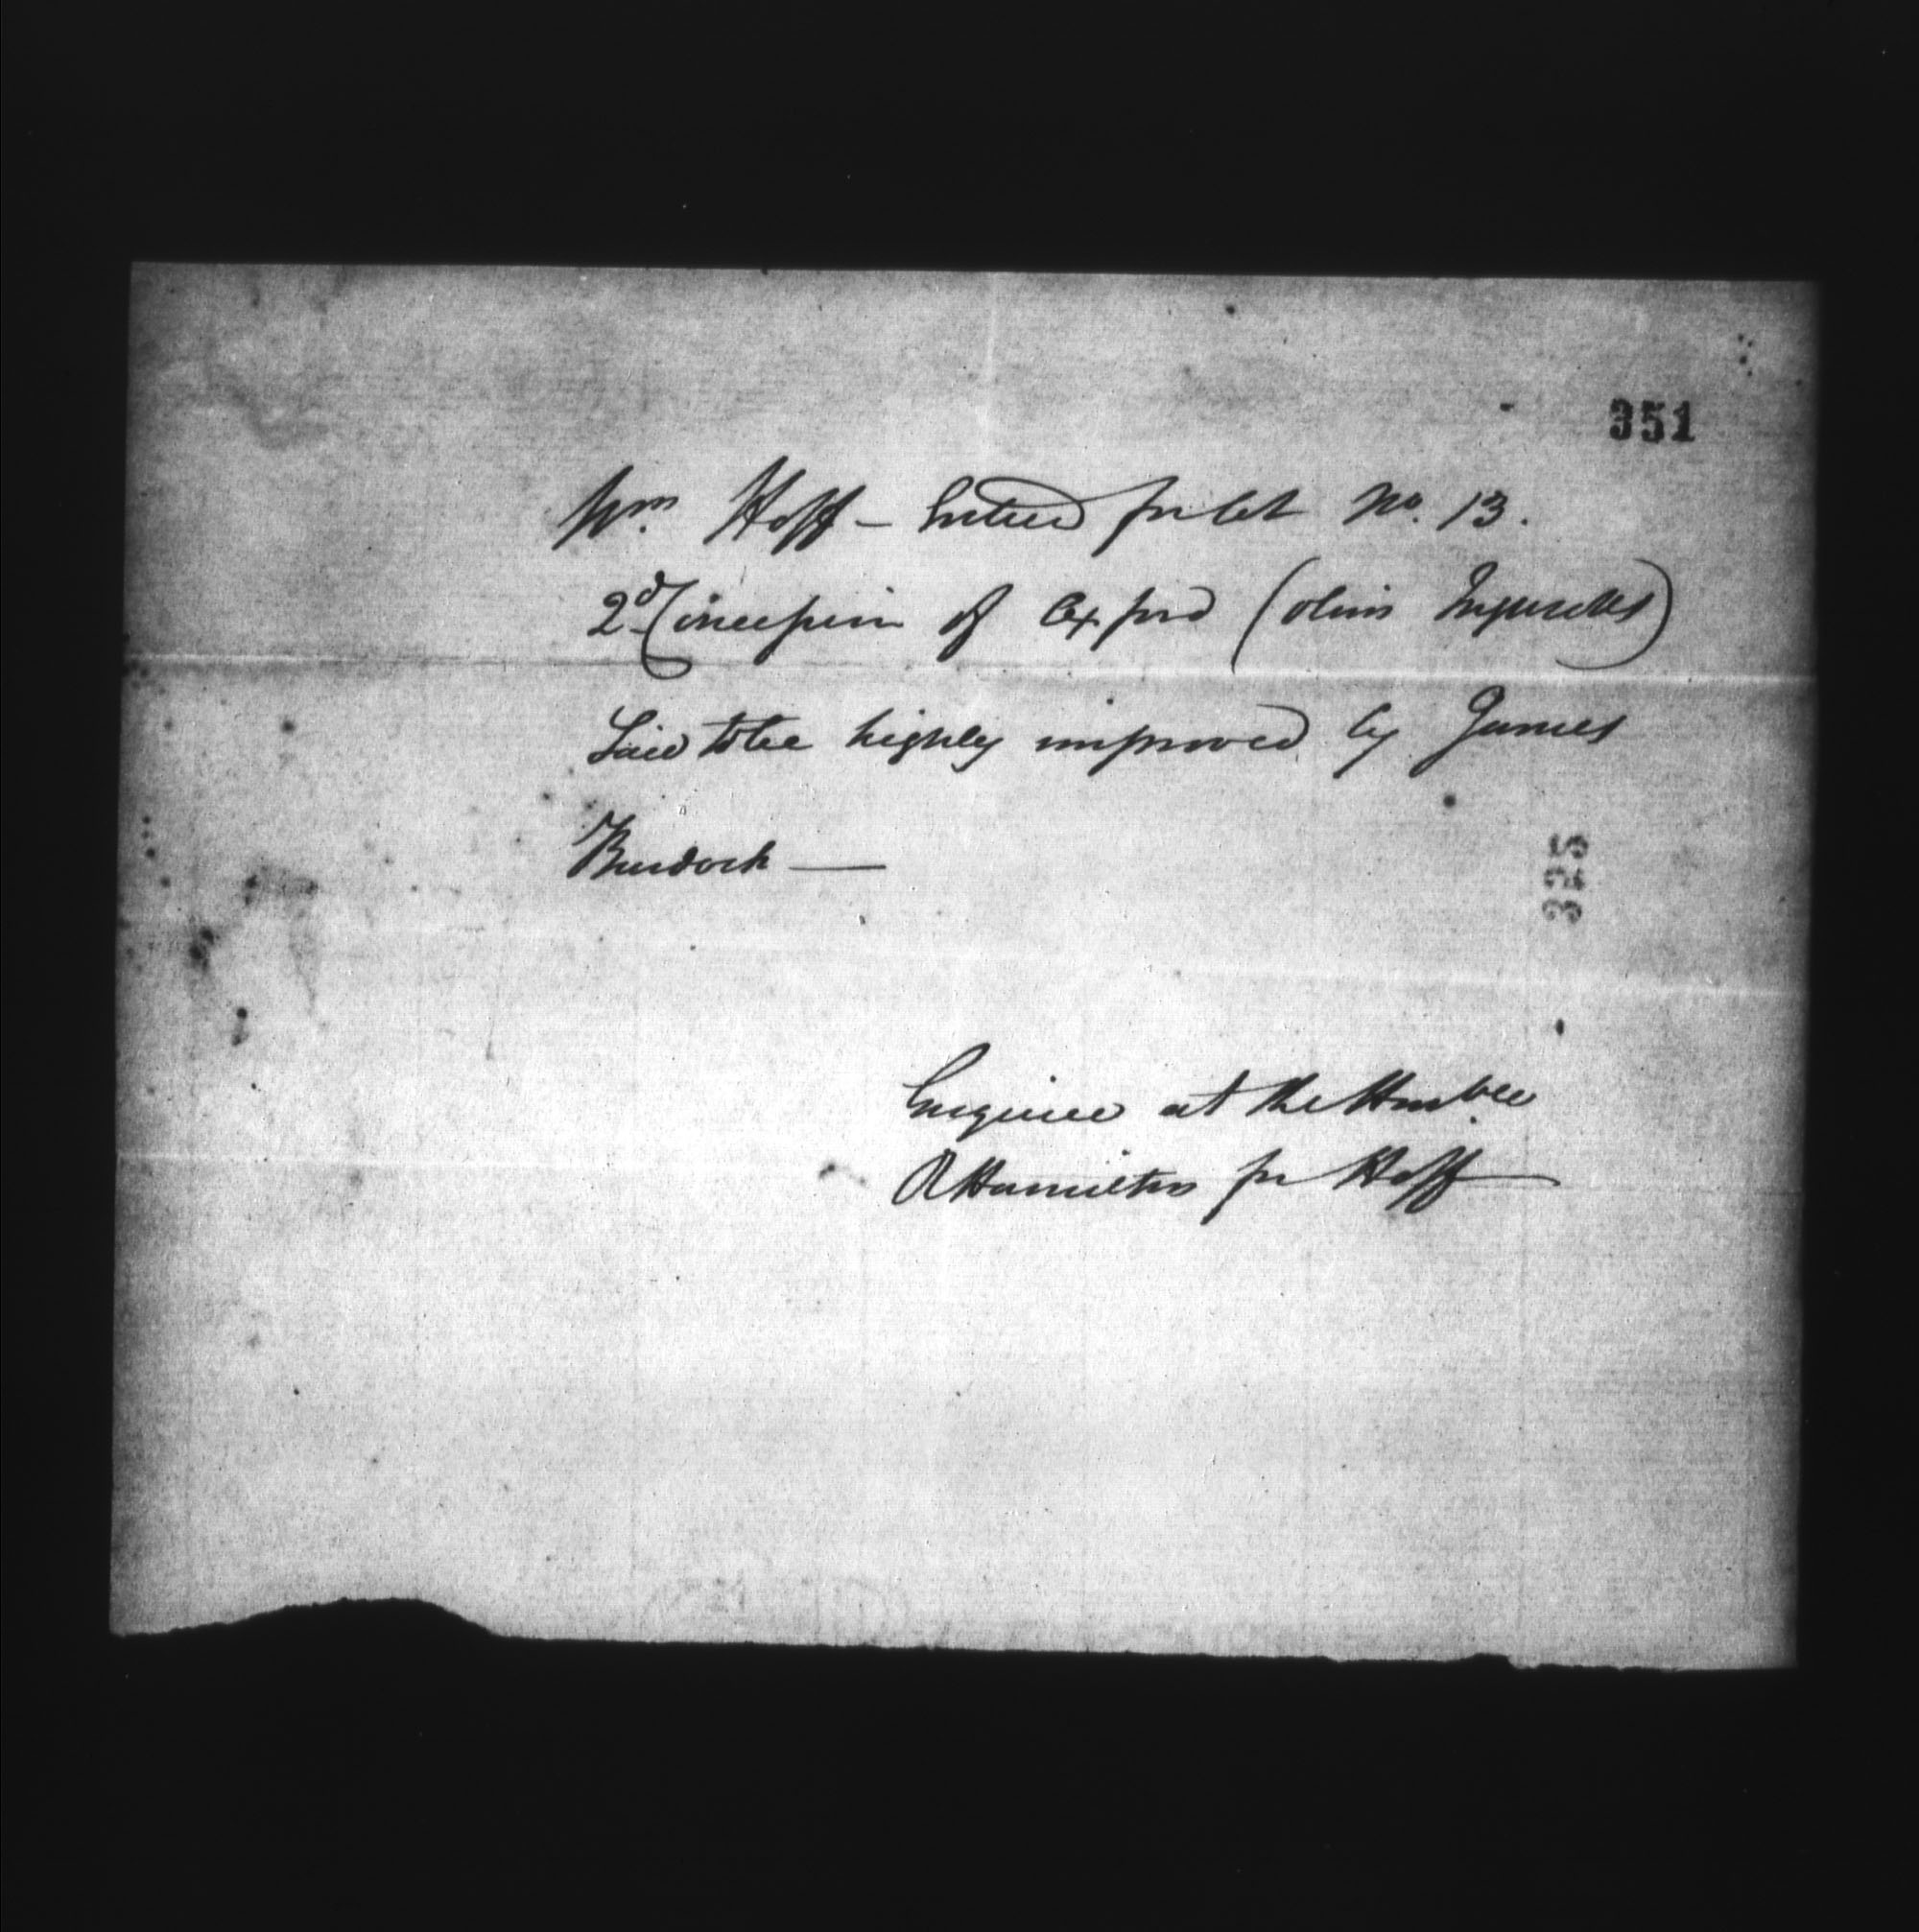 351
Wm. Hoff - Entered for Lot No. 13.
2d Concession of Oxford (olim Ingersolls)
Said to be highly improved by James
Burdock —
325
Enquire at the
R Hamilton for Hoff